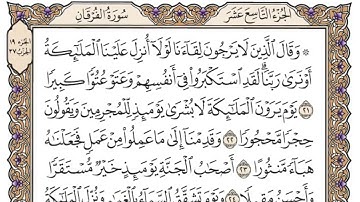 الجزء التاسع عشر
سورة الفرقان
۞ وَقَالَ ٱلَّذِينَ لَا يَرْجُونَ لِقَآءَنَا لَوْلَآ أُنزِلَ عَلَيْنَا ٱلْمَلَٰٓئِكَةُ
أَوْ نَرَىٰ رَبَّنَا ۗ لَقَدِ ٱسْتَكْبَرُوا۟ فِىٓ أَنفُسِهِمْ وَعَتَوْ عُتُوًّا كَبِيرًا
٢١ يَوْمَ يَرَوْنَ ٱلْمَلَٰٓئِكَةَ لَا بُشْرَىٰ يَوْمَئِذٍ لِّلْمُجْرِمِينَ وَيَقُولُونَ
حِجْرًا مَّحْجُورًا ٢٢ وَقَدِمْنَآ إِلَىٰ مَا عَمِلُوا۟ مِنْ عَمَلٍ فَجَعَلْنَٰهُ
هَبَآءً مَّنثُورًا ٢٣ أَصْحَٰبُ ٱلْجَنَّةِ يَوْمَئِذٍ خَيْرٌ مُّسْتَقَرًّا
وَأَحْسَنُ مَقِيلًا ٢٤ وَيَوْمَ تَشَقَّقُ ٱلسَّمَآءُ بِٱلْغَمَٰمِ وَنُزِّلَ ٱلْمَلَٰٓئِكَةُ